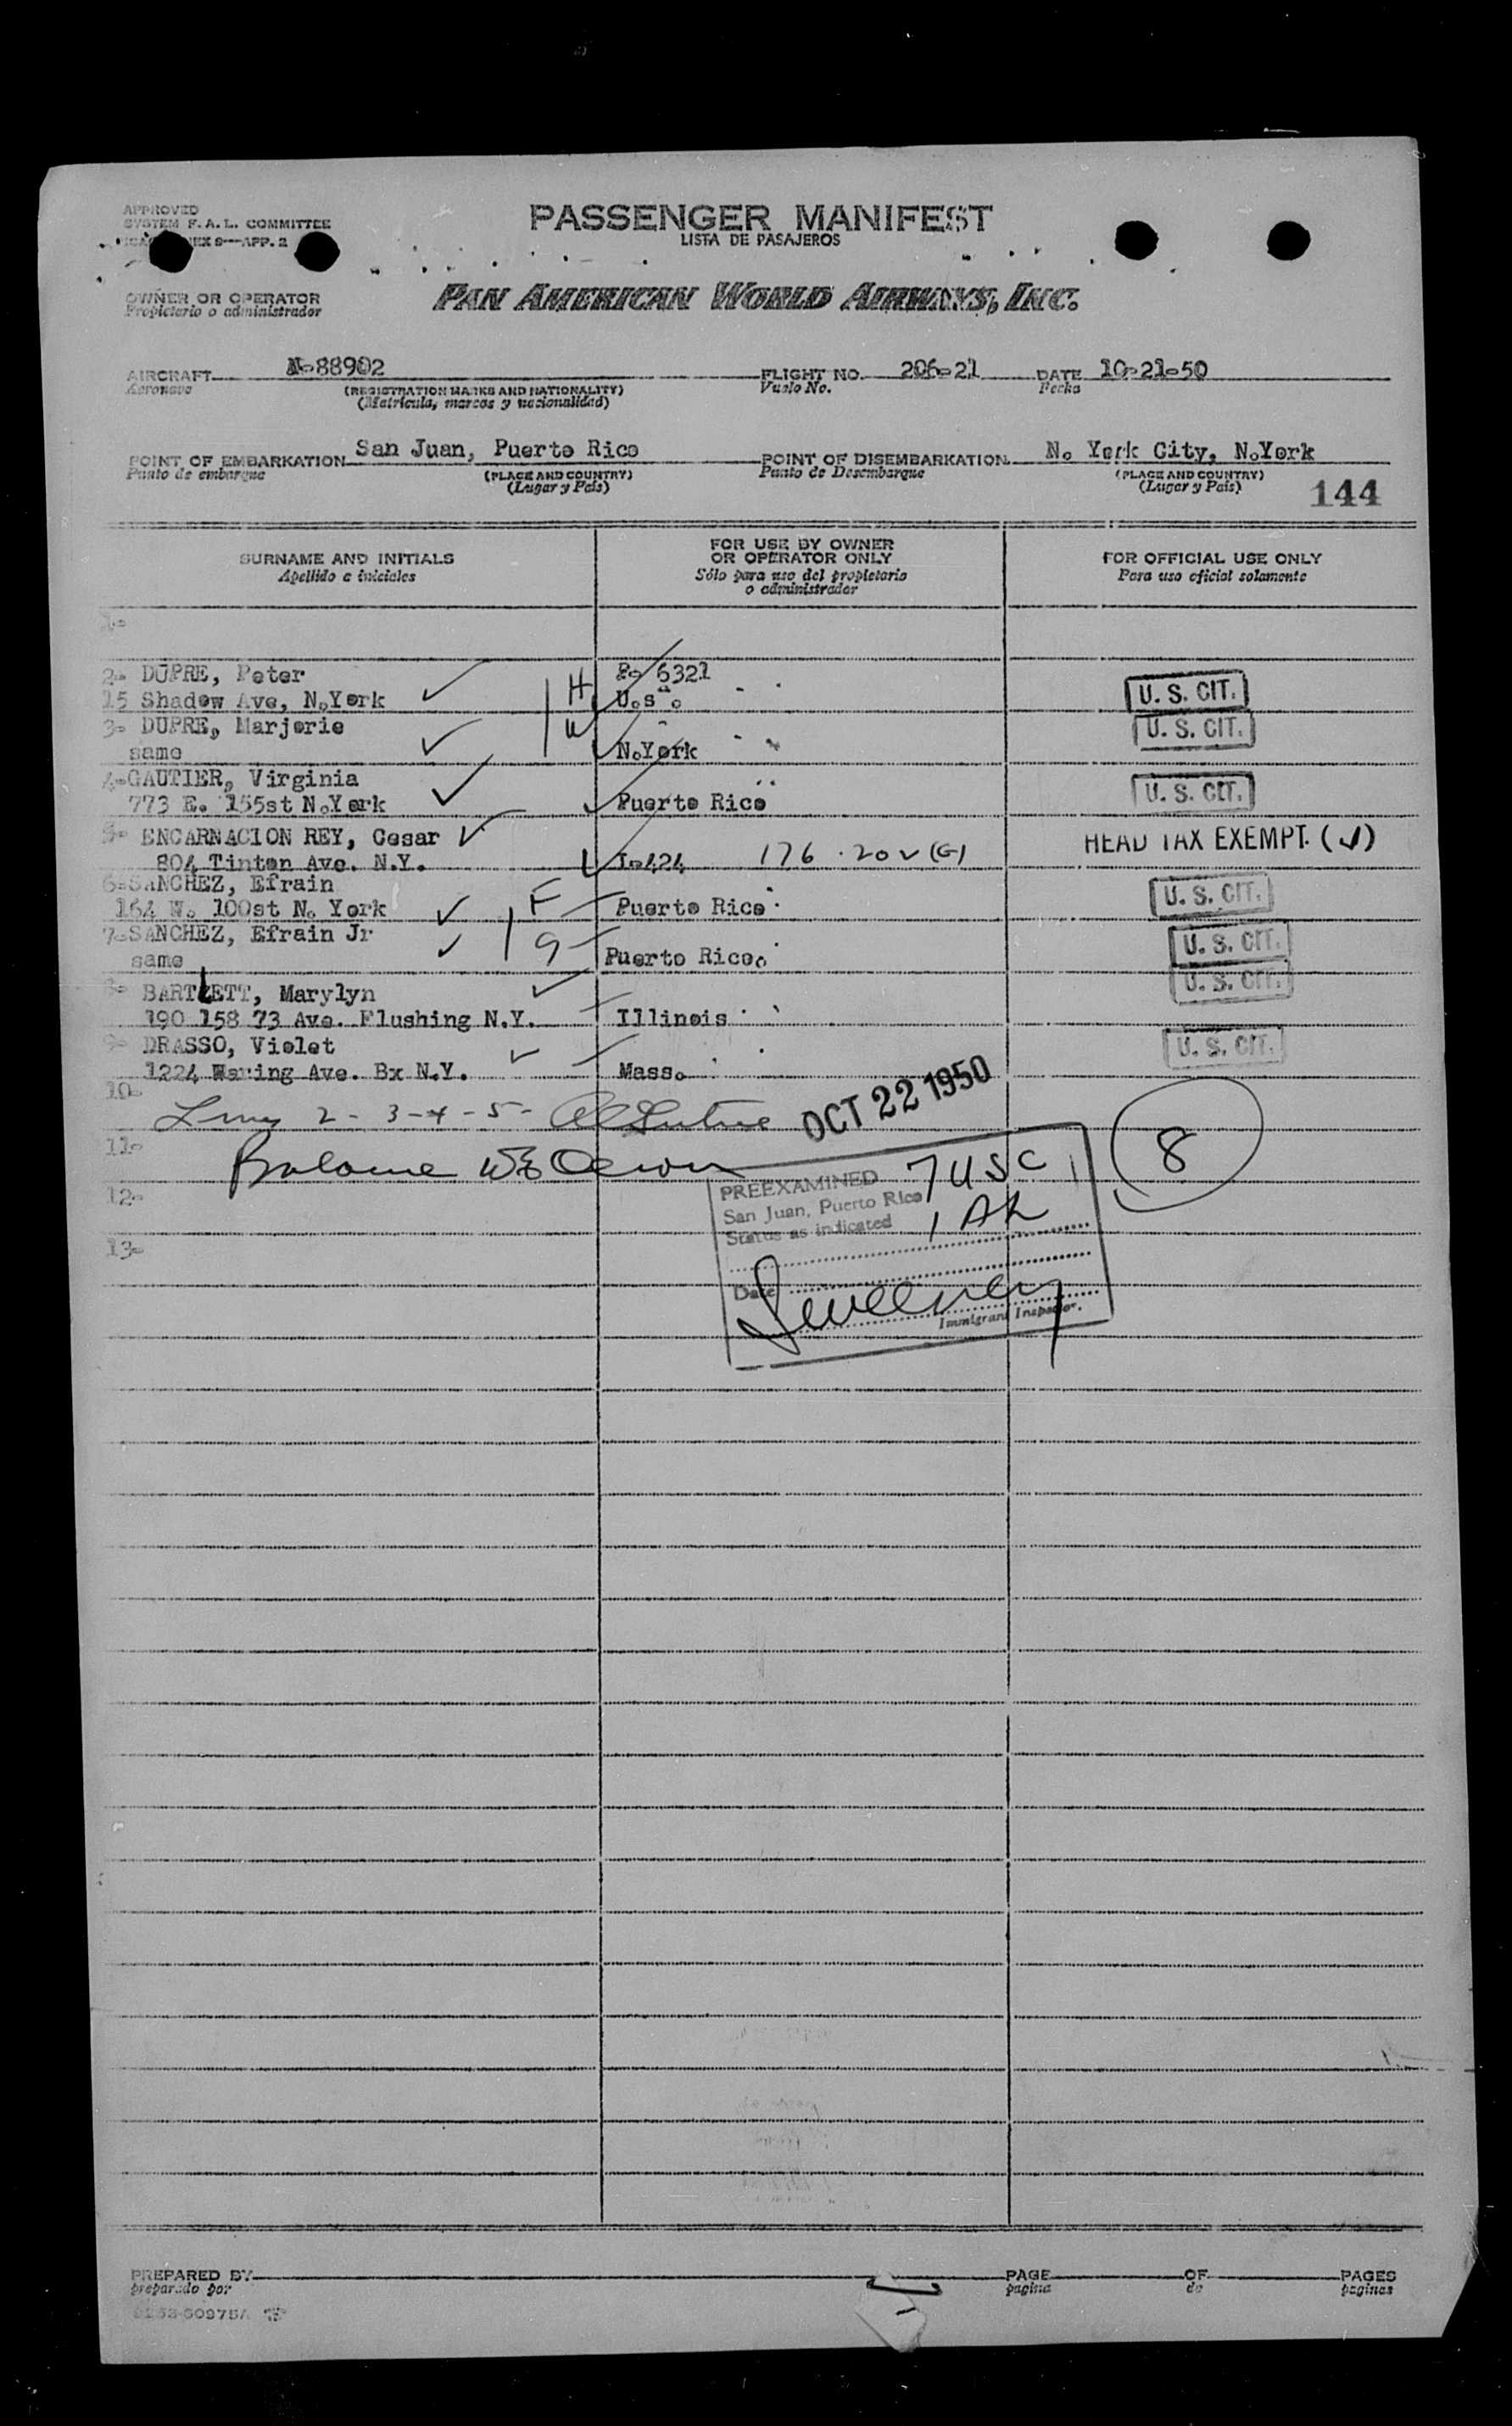 APPROVED
SYSTEM F.A.L. COMMITTEE
EX 9—APP. 2
PASSENGER MANIFEST
LISTA DE PASAJEROS
OWNER OR OPERATOR
Propietario o administrador
PAN AMERICAN WORLD AIRWAYS, INC.
AIRCRAFT N-88902 FLIGHT NO. 206-21 DATE 10-21-50
Aeronave (REGISTRATION MARKS AND NATIONALITY) Vuelo No. Fecha
(Matrícula, marcas y nacionalidad)
POINT OF EMBARKATION San Juan, Puerto Rico POINT OF DISEMBARKATION N. York City, N.York
Punto de embarque (PLACE AND COUNTRY) Punto de Desembarque (PLACE AND COUNTRY)
(Lugar y País) (Lugar y País) 144
SURNAME AND INITIALS FOR USE BY OWNER OR OPERATOR ONLY FOR OFFICIAL USE ONLY
Apellido e iniciales Sólo para uso del propietario o administrador Para uso oficial solamente
1-
2- DUPRE, Peter H P- 6321
15 Shadow Ave, N.York U.s. U. S. CIT.
3- DUPRE, Marjorie W U. S. CIT.
same N.York
4-GAUTIER, Virginia
773 E. 155st N.York Puerto Rico U. S. CIT.
5- ENCARNACION REY, Cesar HEAD TAX EXEMPT. (✓)
804 Tinton Ave. N.Y. I-424 176.202(G)
6-SANCHEZ, Efrain F
164 W. 100st N. York Puerto Rico U. S. CIT.
7-SANCHEZ, Efrain Jr
same Puerto Rico. U. S. CIT.
8- BARTLETT, Marylyn U. S. CIT.
190 158 73 Ave. Flushing N.Y. Illinois
9- DRASSO, Violet U. S. CIT.
1224 Waring Ave. Bx N.Y. Mass.
10-
2 - 3 - 4 - 5 - OCT 22 1950
11-
Balance
8
12-
PREEXAMINED 7 USC
San Juan, Puerto Rico
Status as indicated 1 AR
13-
Date
Immigrant Inspector.
PREPARED BY PAGE OF PAGES
preparado por pagina de paginas